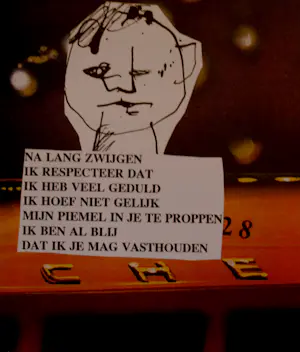 NA LANG ZWIJGEN
IK RESPECTEER DAT
IK HEB VEEL GEDULD
IK HOEF NIET GELIJK
MIJN PIEMEL IN JE TE PROPPEN
IK BEN AL BLIJ
DAT IK JE MAG VASTHOUDEN
28
CHE